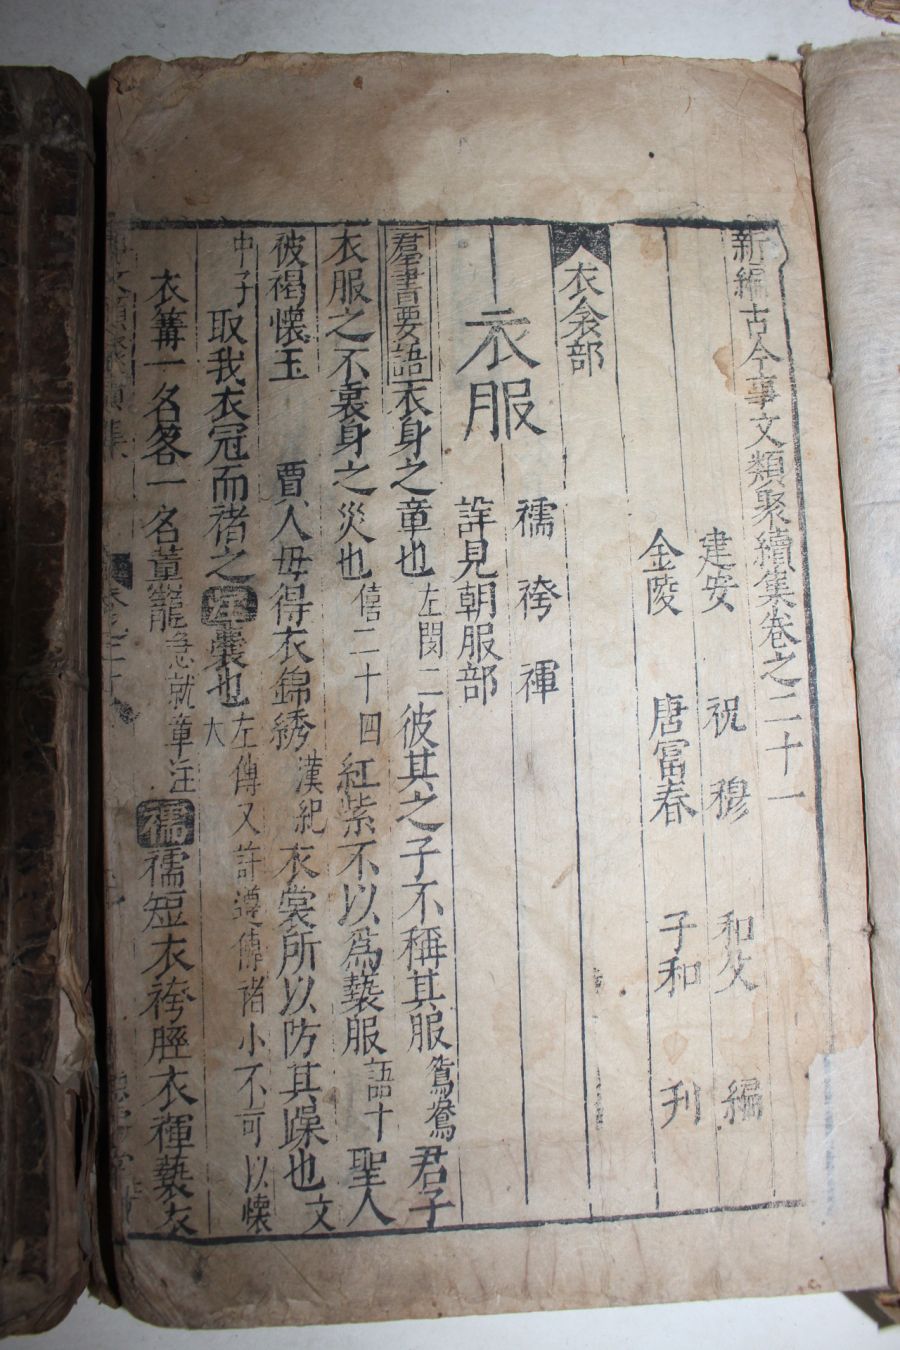 新編古今事文類聚續集卷之二十一
建安 祝 穆 和父 編
金陵 唐冨春 子和 刋
衣衾部
衣服 襦 袴 褌
詳見朝服部
羣書要語 衣身之章也 左閔二 彼其之子不稱其服 鴛鴦 君子
衣服之不衷身之災也 僖二十四 紅紫不以爲褻服 語十 聖人
被褐懷玉 賈人毋得衣錦綉 漢紀 衣裳所以防其躁也 文
中子 取我衣冠而禇之 囊也 左傳又許遵傳禇小不可以懷大
衣篝一名客一名薫籠 急就章注 襦 襦短衣袴脛衣褌褻衣